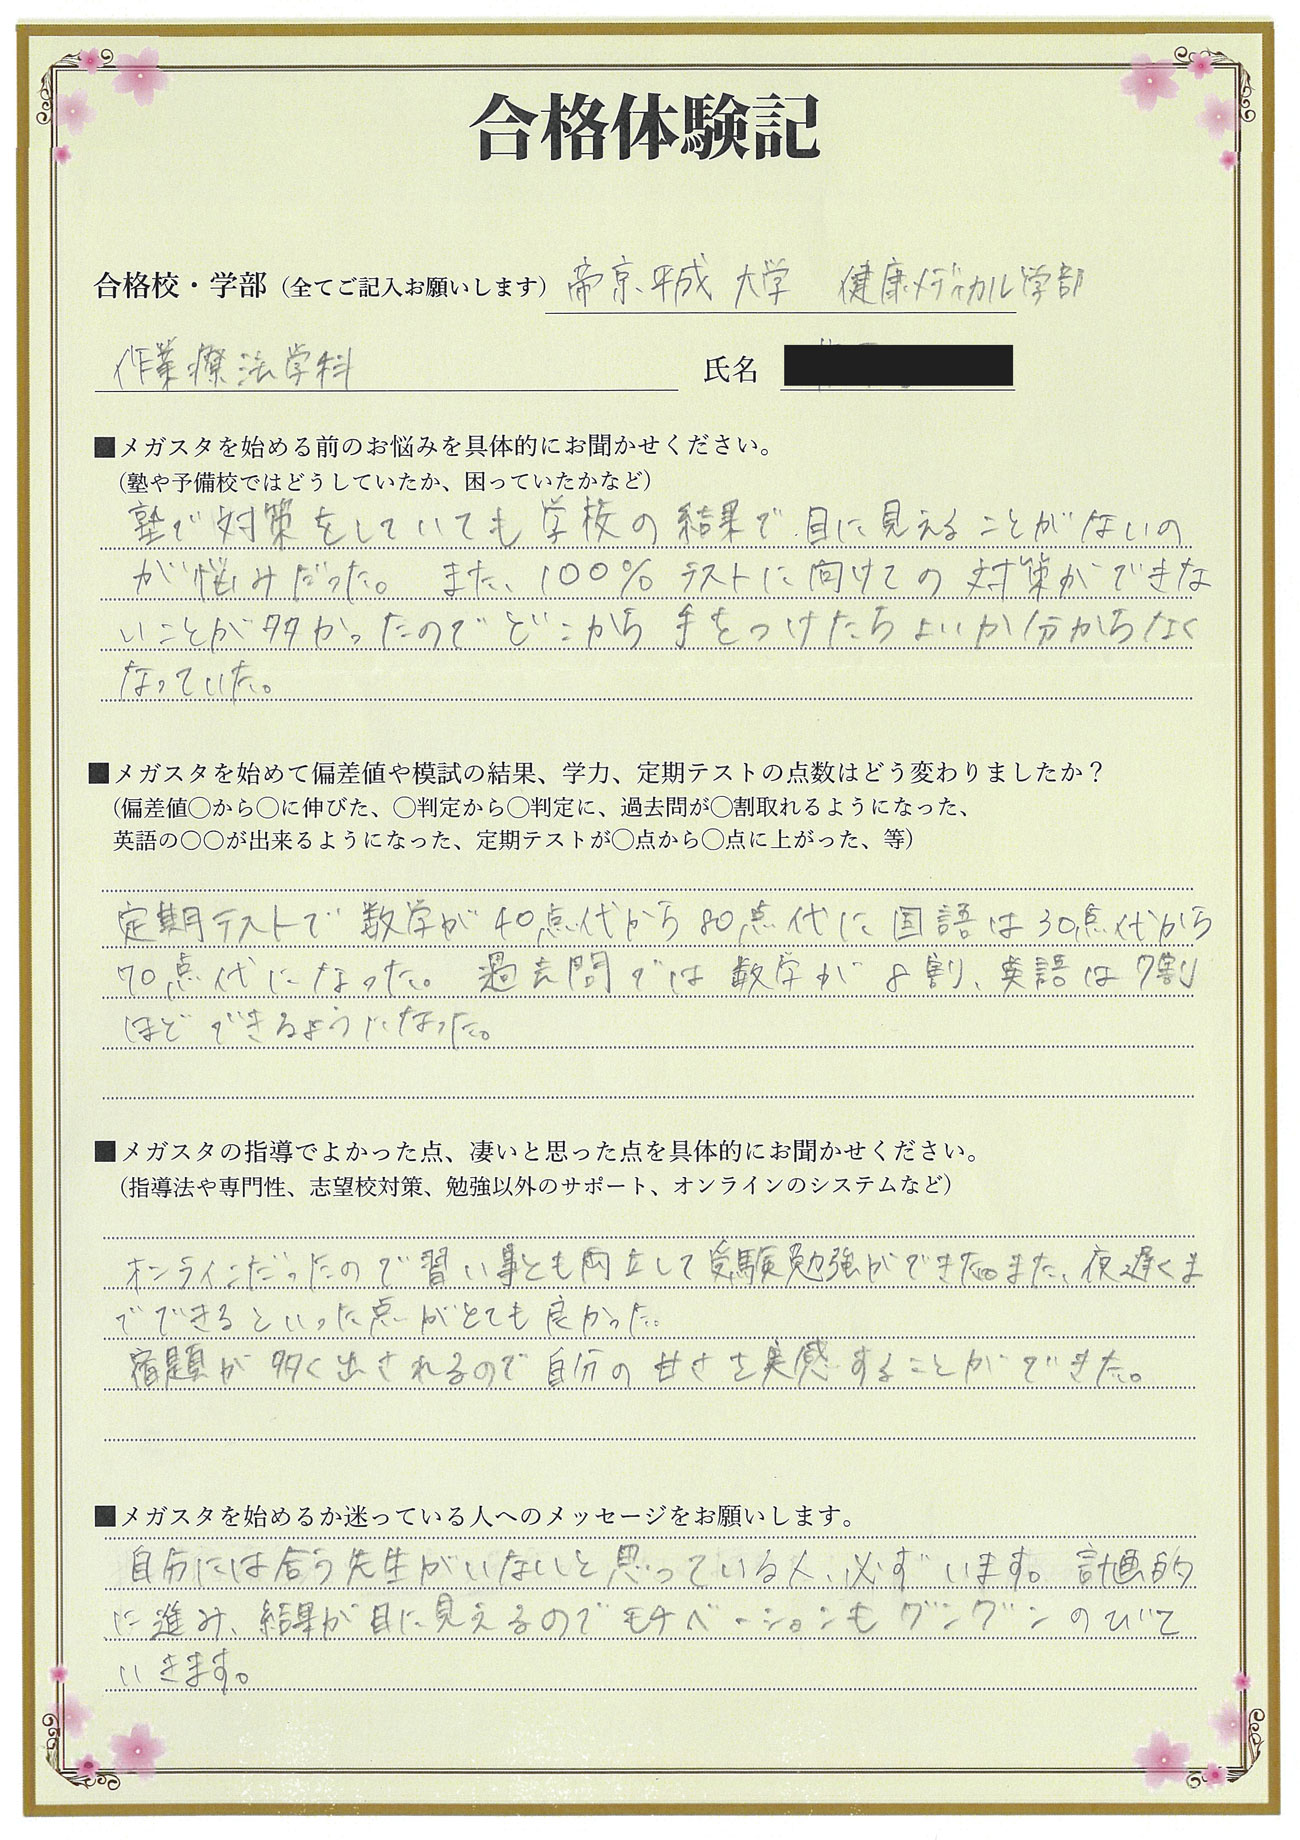 合格体験記
合格校・学部（全てご記入お願いします）帝京平成大学 健康メディカル学部
作業療法学科 氏名
■メガスタを始める前のお悩みを具体的にお聞かせください。
（塾や予備校ではどうしていたか、困っていたかなど）
塾で対策をしていても学校の結果で目に見えることがないの
が悩みだった。また、100%テストに向けての対策ができな
いことが多かったのでどこから手をつけたらよいか分からなく
なっていた。
■メガスタを始めて偏差値や模試の結果、学力、定期テストの点数はどう変わりましたか？
（偏差値〇から〇に伸びた、〇判定から〇判定に、過去問が〇割取れるようになった、
英語の〇〇が出来るようになった、定期テストが〇点から〇点に上がった、等）
定期テストで数学が40点代から80点代に国語は30点代から
70点代になった。過去問では数学が8割、英語は7割
ほどできるようになった。
■メガスタの指導でよかった点、凄いと思った点を具体的にお聞かせください。
（指導法や専門性、志望校対策、勉強以外のサポート、オンラインのシステムなど）
オンラインだったので習い事とも両立して受験勉強ができた。また、夜遅くま
でできるといった点がとても良かった。
宿題が多く出されるので自分の甘さを実感することができた。
■メガスタを始めるか迷っている人へのメッセージをお願いします。
自分には合う先生がいないと思っている人、必ずいます。計画的
に進み、結果が目に見えるのでモチベーションもグングンのびて
いきます。